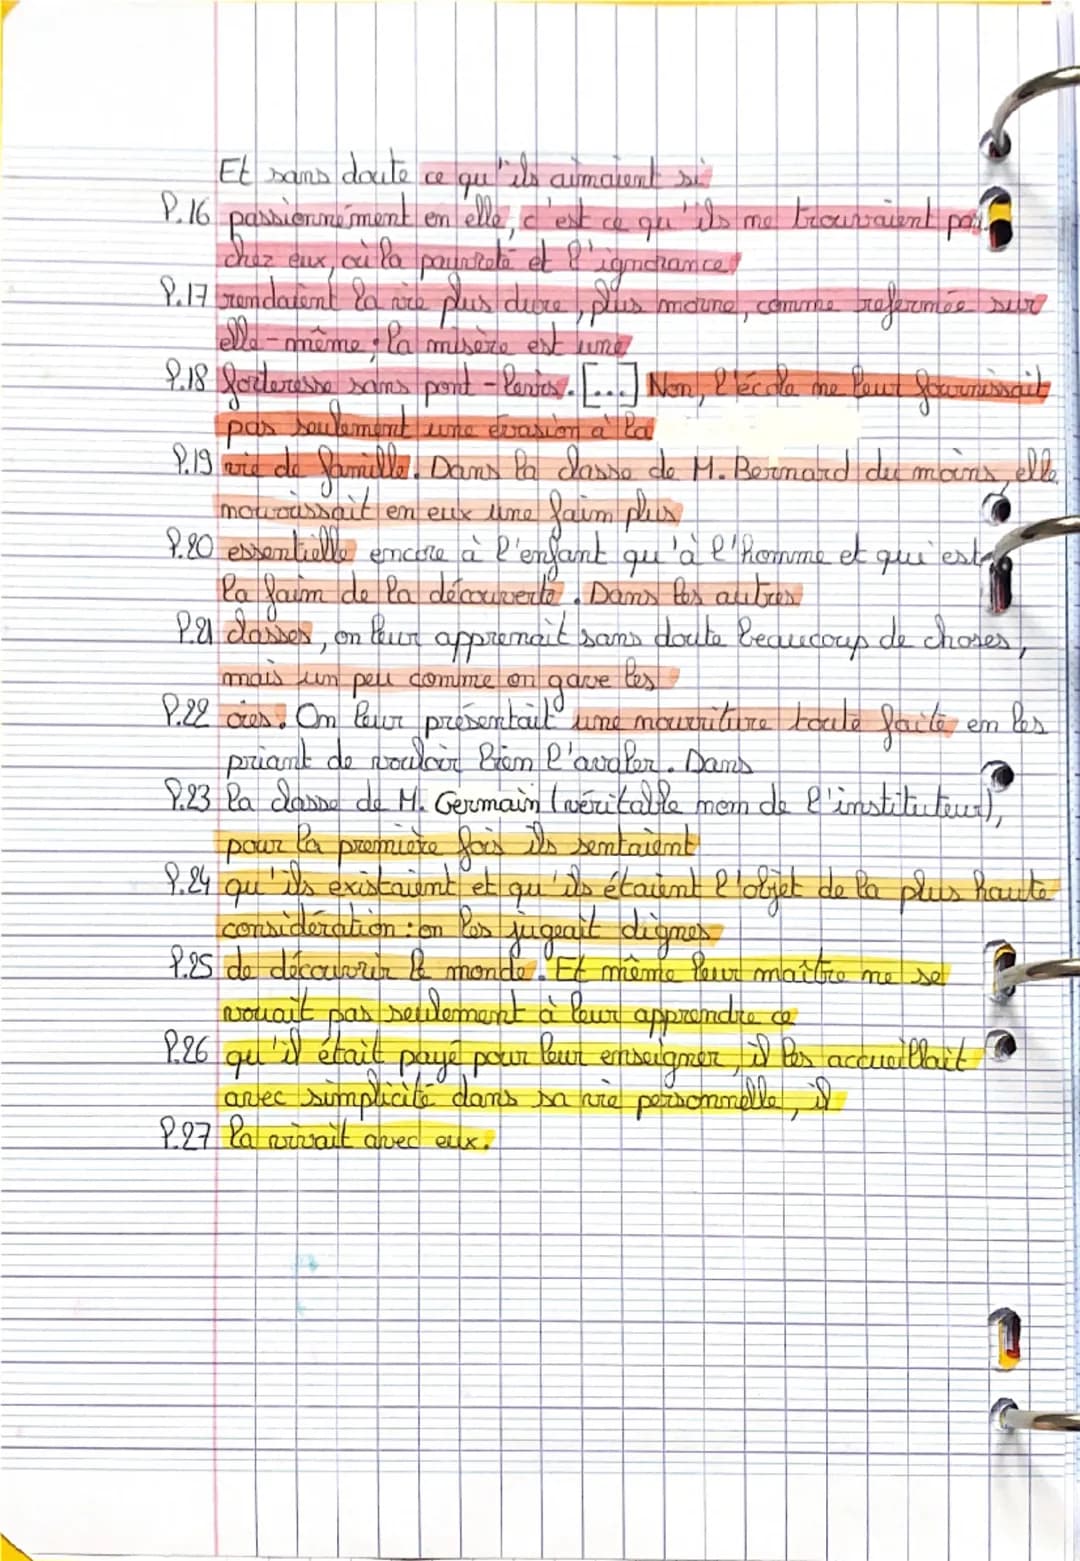 Et sans doute ce qu'ils aimaient si
P.16 passionnément en elle, c'est ce qu'ils ne trouvaient pas
chez eux, où la pauvreté et l'ignorance
P.17 rendaient la vie plus dure, plus morne, comme refermée sur
elle-même ; la misère est une
P.18 forteresse sans pont-levis. [...] Non, l'école ne leur fournissait
pas seulement une évasion à la
P.19 vie de famille. Dans la classe de M. Bernard du moins, elle
nourrissait en eux une faim plus
P.20 essentielle encore à l'enfant qu'à l'homme et qui est
la faim de la découverte. Dans les autres
P.21 classes, on leur apprenait sans doute beaucoup de choses,
mais un peu comme on gave les
P.22 oies. On leur présentait une nourriture toute faite en les
priant de vouloir bien l'avaler. Dans
P.23 la classe de M. Germain (véritable nom de l'instituteur),
pour la première fois ils sentaient
P.24 qu'ils existaient et qu'ils étaient l'objet de la plus haute
considération : on les jugeait dignes
P.25 de découvrir le monde. Et même leur maître ne se
vouait pas seulement à leur apprendre ce
P.26 qu'il était payé pour leur enseigner, il les accueillait
avec simplicité dans sa vie personnelle, il
P.27 la vivait avec eux.